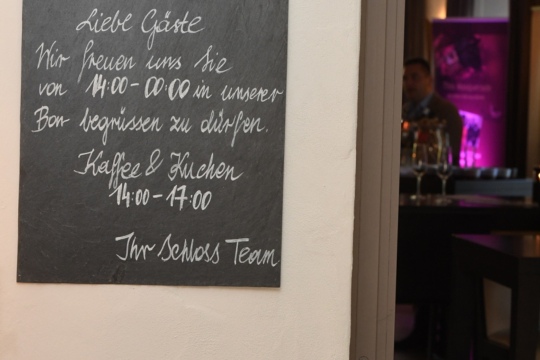 Liebe Gäste
Wir freuen uns Sie
von 14:00-00:00 in unserer
Bar begrüssen zu dürfen.
Kaffee & Kuchen
14:00-17:00
Ihr Schloss Team